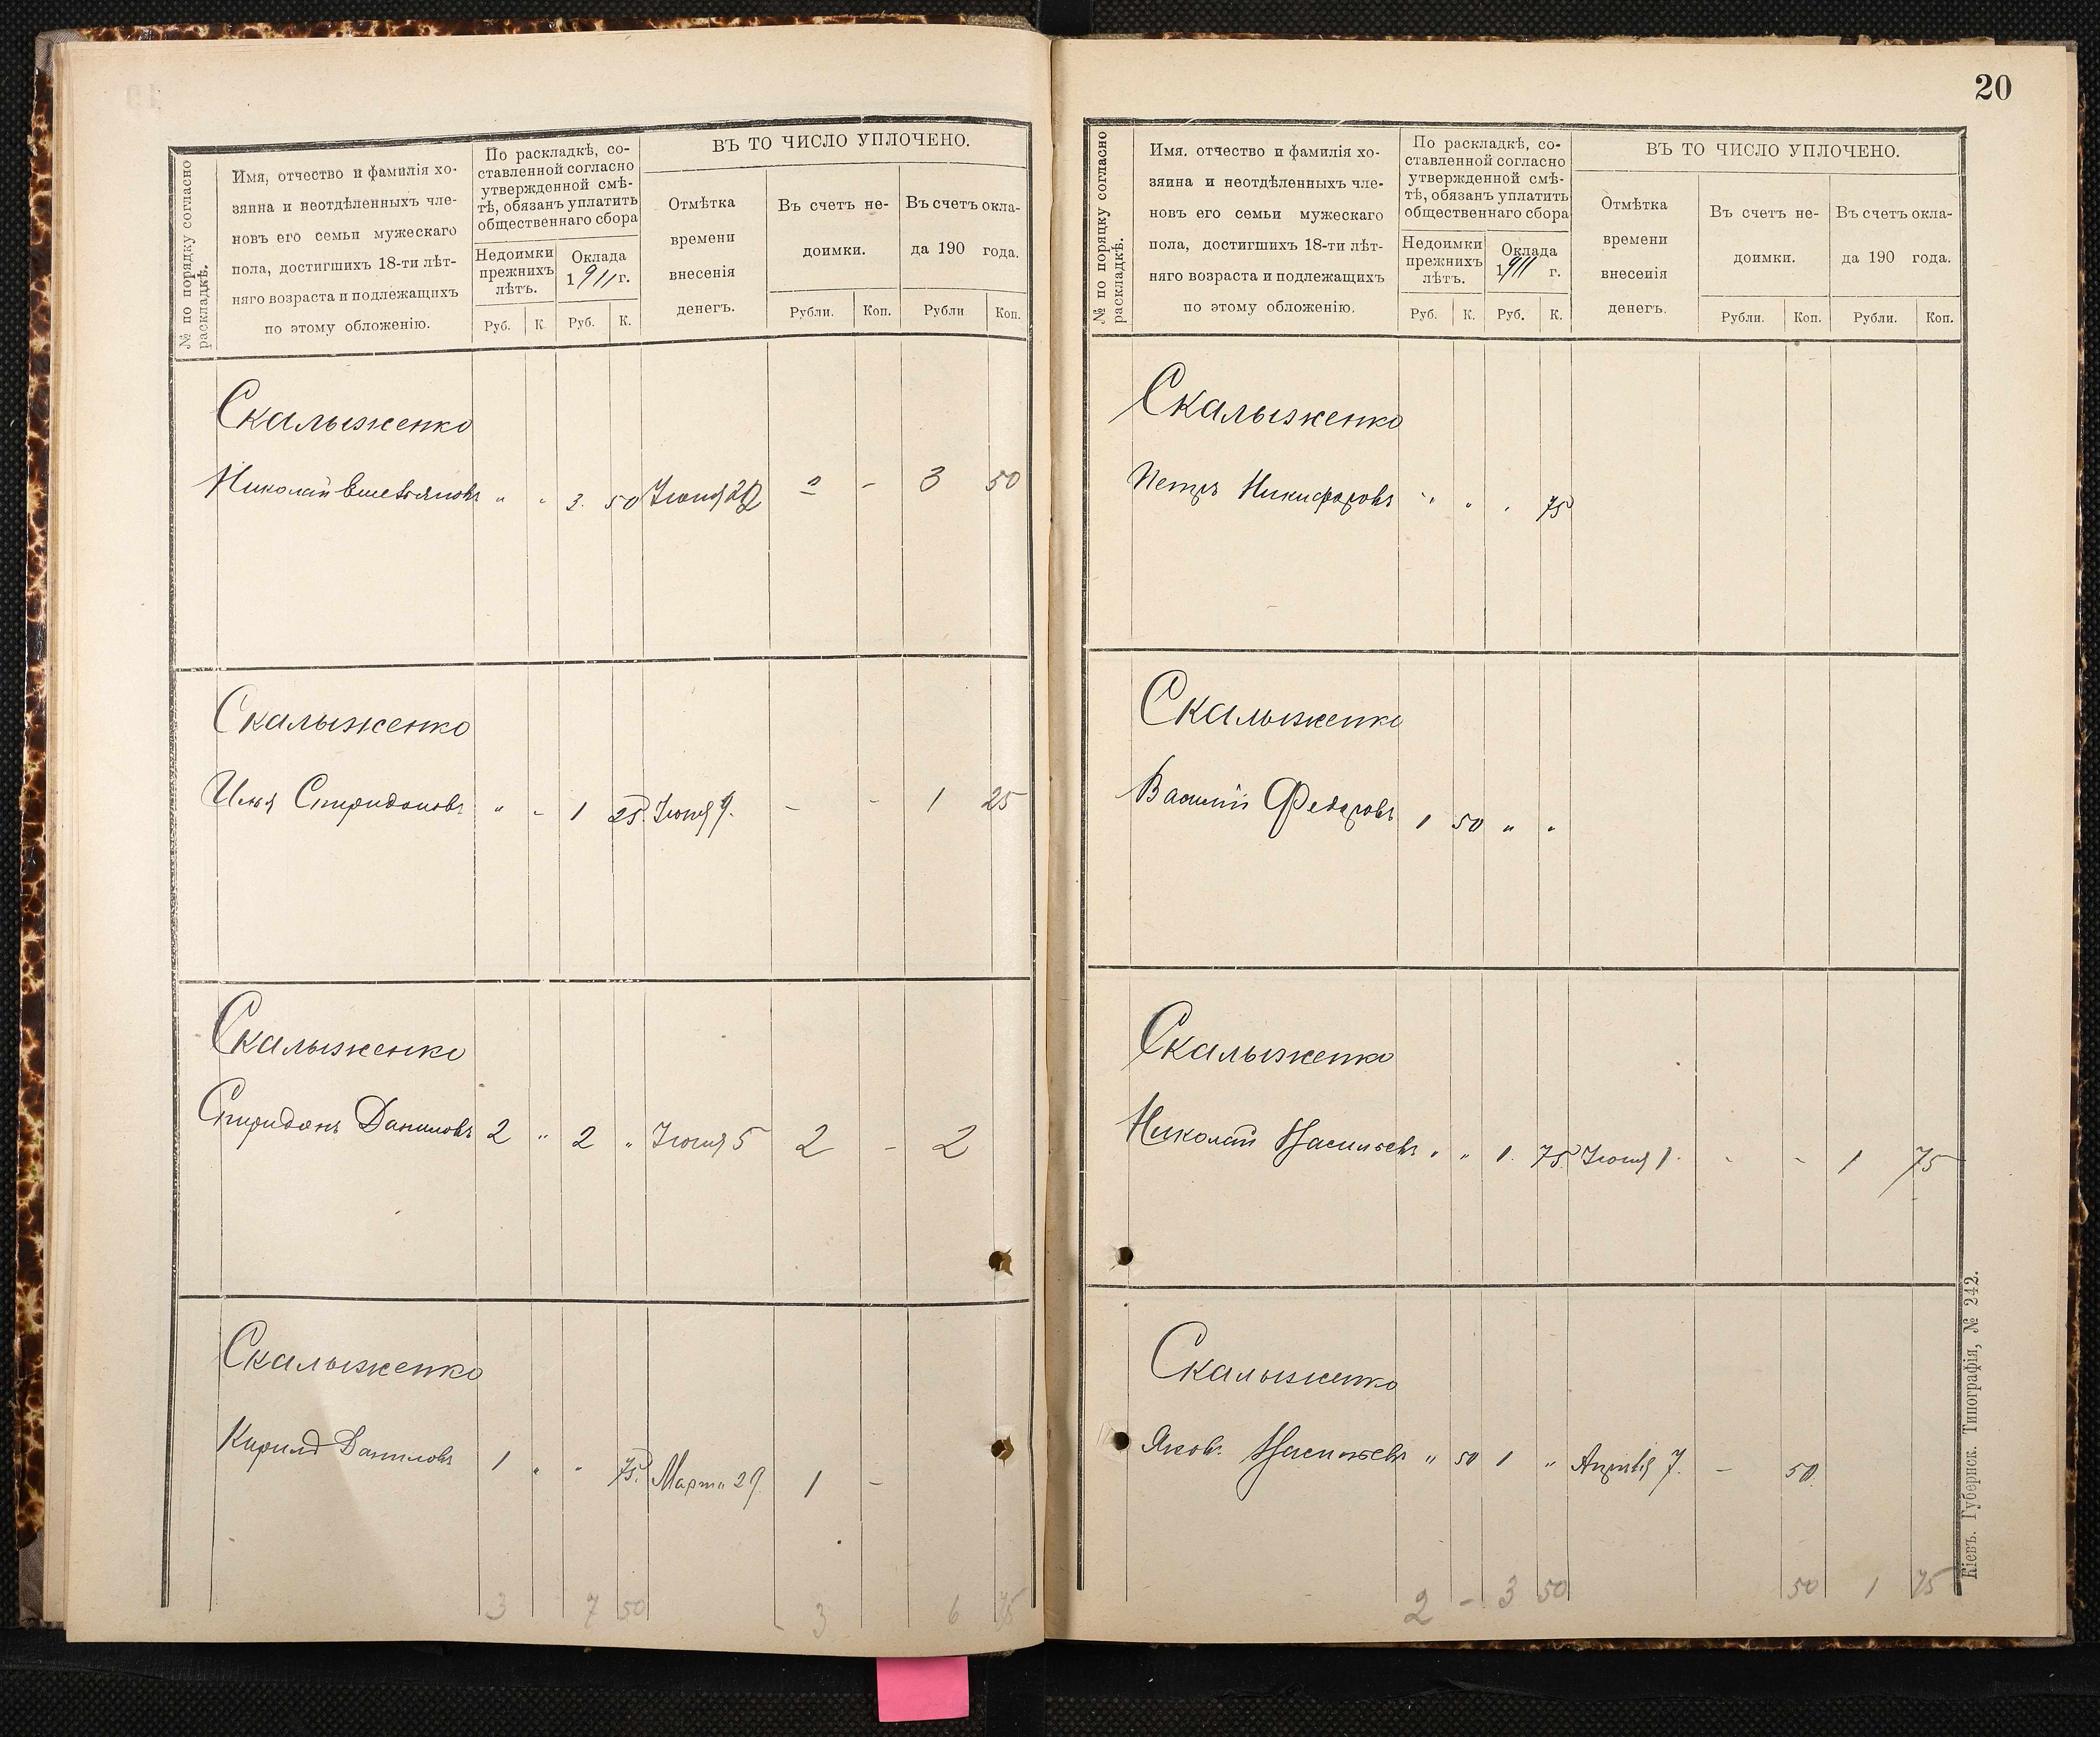 № по порядку согласно
раскладкѣ.
Имя, отчество и фамилія хо-
зяина и неотдѣленныхъ чле-
новъ его семьи мужескаго
пола, достигшихъ 18-ти лѣт-
няго возраста и подлежащихъ
по этому обложенію.
По раскладкѣ, со-
ставленной согласно
утвержденной смѣ-
тѣ, обязанъ уплатить
общественнаго сбора
Недоимки
прежнихъ
лѣтъ.
Оклада
1911 г.
Руб. К. Руб. К.
ВЪ ТО ЧИСЛО УПЛОЧЕНО.
Отмѣтка
времени
внесенія
денегъ.
Въ счетъ не-
доимки.
Рубли. Коп.
Въ счетъ окла-
да 190 года.
Рубли Коп.
Скалыженко
Николай " " 3. 50 Іюня - 3 50
Скалыженко
Илья Спиридоновъ " - 1 25. Іюня 9. - - 1 25
Скалыженко
Спиридонъ Даниловъ 2 " 2 " Іюня 5 2 - 2
Скалыженко
Кирилъ Даниловъ 1 " " 75. Марта 29. 1 -
3 7 50 3 6 75
20
№ по порядку согласно
раскладкѣ.
Имя. отчество и фамилія хо-
зяина и неотдѣленныхъ чле-
новъ его семьи мужескаго
пола, достигшихъ 18-ти лѣт-
няго возраста и подлежащихъ
по этому обложенію.
По раскладкѣ, со-
ставленной согласно
утвержденной смѣ-
тѣ, обязанъ уплатить
общественнаго сбора
Недоимки
прежнихъ
лѣтъ.
Оклада
1911 г.
Руб. К. Руб. К.
ВЪ ТО ЧИСЛО УПЛОЧЕНО.
Отмѣтка
времени
внесенія
денегъ.
Въ счетъ не-
доимки.
Рубли. Коп.
Въ счетъ окла-
да 190 года.
Рубли. Коп.
Скалыженко
Петръ Никифоровъ " " " 75
Скалыженко
Василій Федоровъ 1 50 " "
Скалыженко
Николай Васильевъ " " 1. 75. Іюня 1. - - 1 75
Скалыженко
Яковъ Васильевъ " 50 1 " Апрѣля 7. - 50.
2 - 3 50 50 1 75
Кіевъ. Губернск. Типографія, № 242.